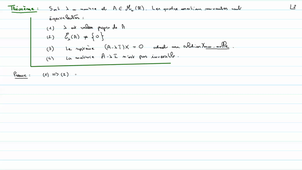 Théorème : Soit λ un nombre et A ∈ M_n(K). Les quatre assertions suivantes sont
équivalentes
(1) λ est valeur propre de A
(2) E_λ(A) ≠ {0}
(3) Le système (A-λI)X = 0 admet une solution non-nulle.
(4) La matrice A-λI n'est pas inversible.
Preuve : (1) => (2)